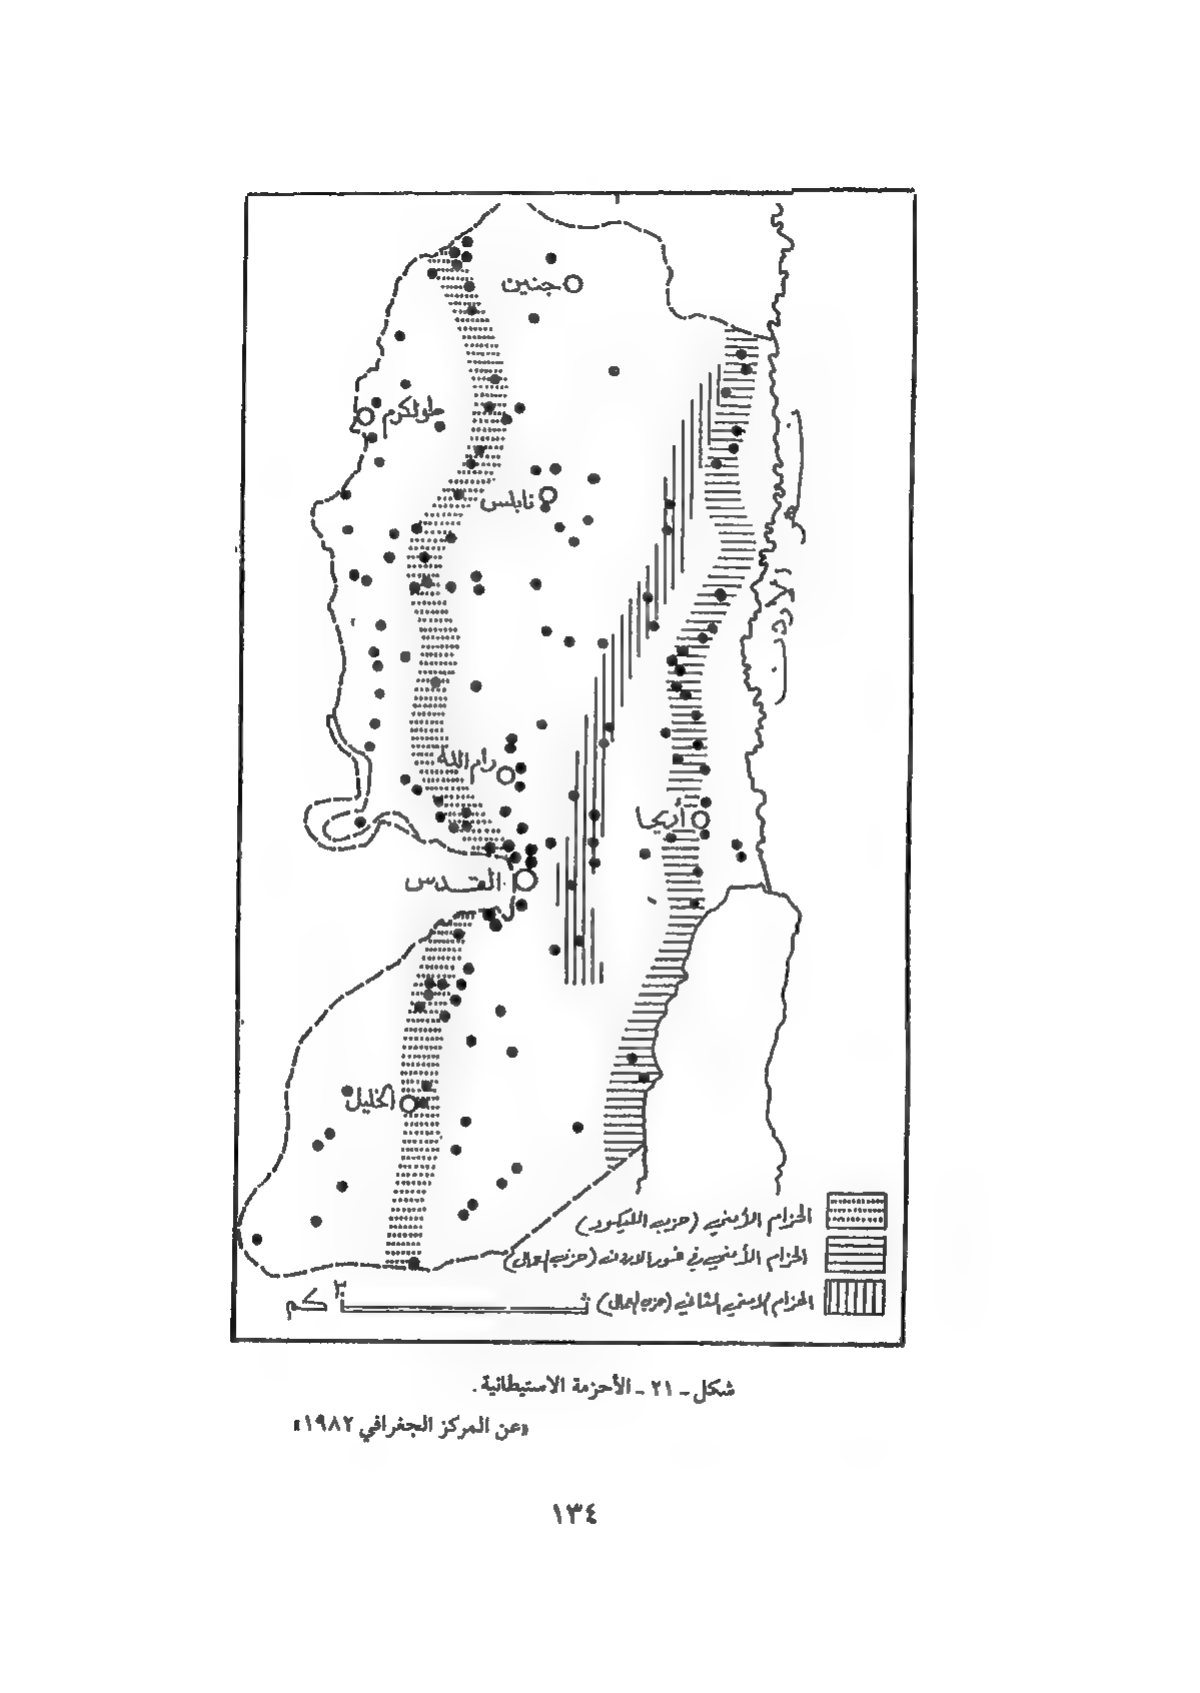 جنين
طولكرم
نابلس
نهر
الأردن
رام الله
أريحا
القدس
الخليل
الحزام الأمني (حزب الليكود)
الحزام الأمني في غور الاردن (حزب العمال)
الحزام الامني الثاني (حزب العمال)
كم
شكل ـ ٢١ ـ الأحزمة الاستيطانية .
«عن المركز الجغرافي ١٩٨٢»
١٣٤